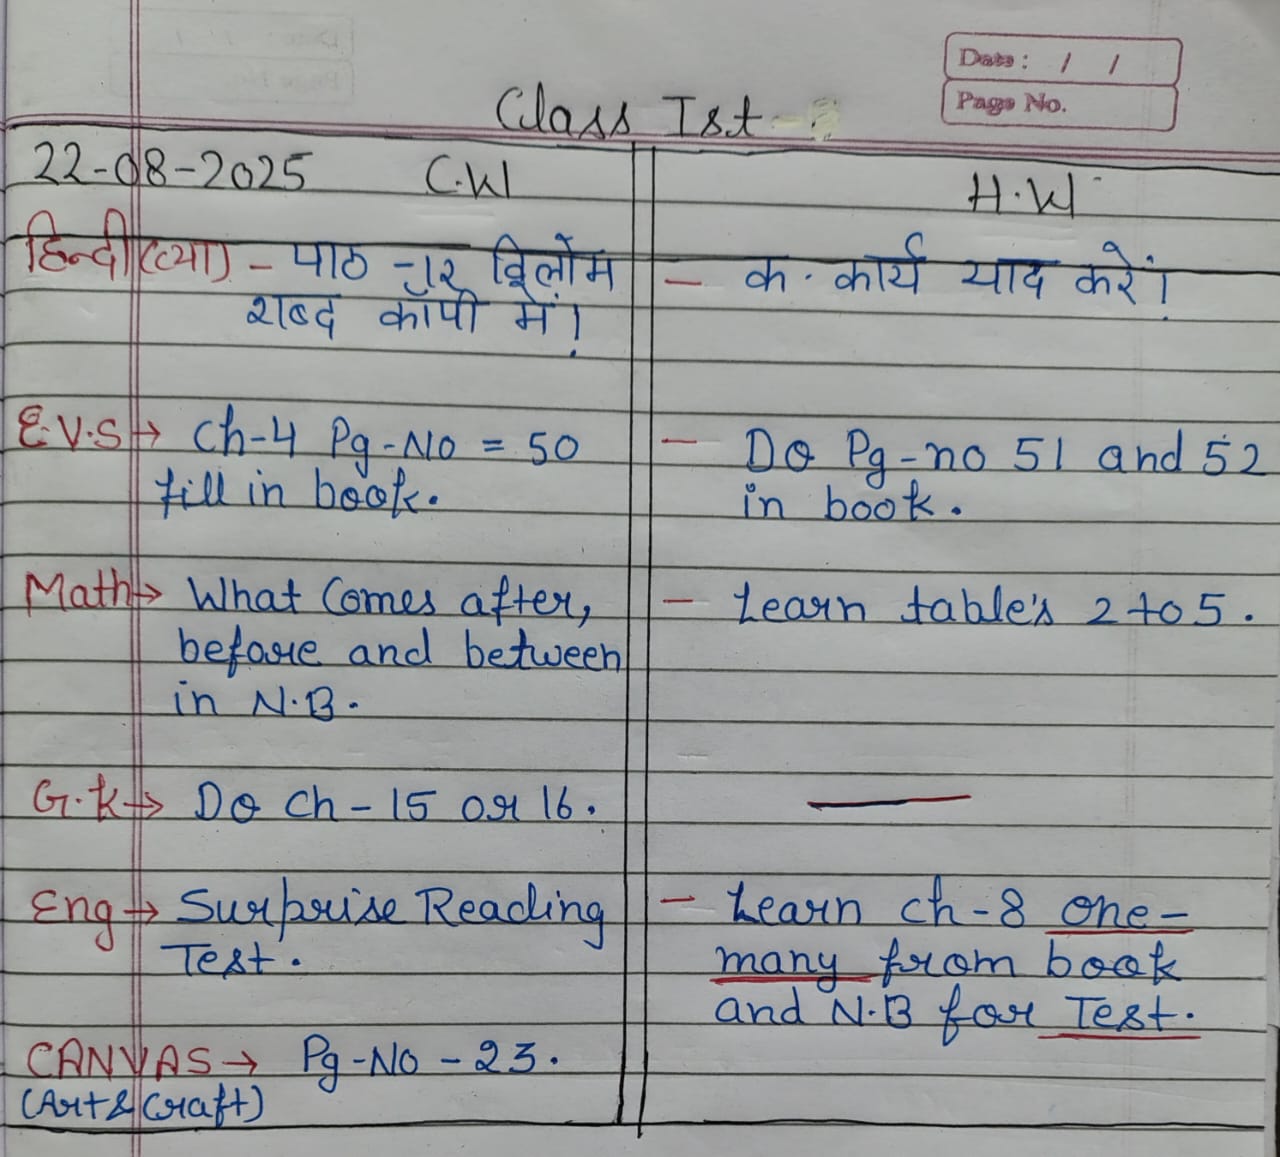 Date : / /
Page No.
Class Ist
22-08-2025 C.W H.W
हिन्दी (व्या) - पाठ -१२ विलोम - क. कार्य याद करें।
शब्द कॉपी में।
E.V.S → Ch-4 Pg-No = 50 - Do Pg-no 51 and 52
fill in book. in book.
Math → What Comes after, - Learn table's 2 to 5.
before and between
in N.B.
G.k → Do Ch - 15 or 16. —
Eng → Surprise Reading - Learn ch-8 one-
Test. many from book
and N.B for Test.
CANVAS → Pg-No - 23.
(Art & Craft)